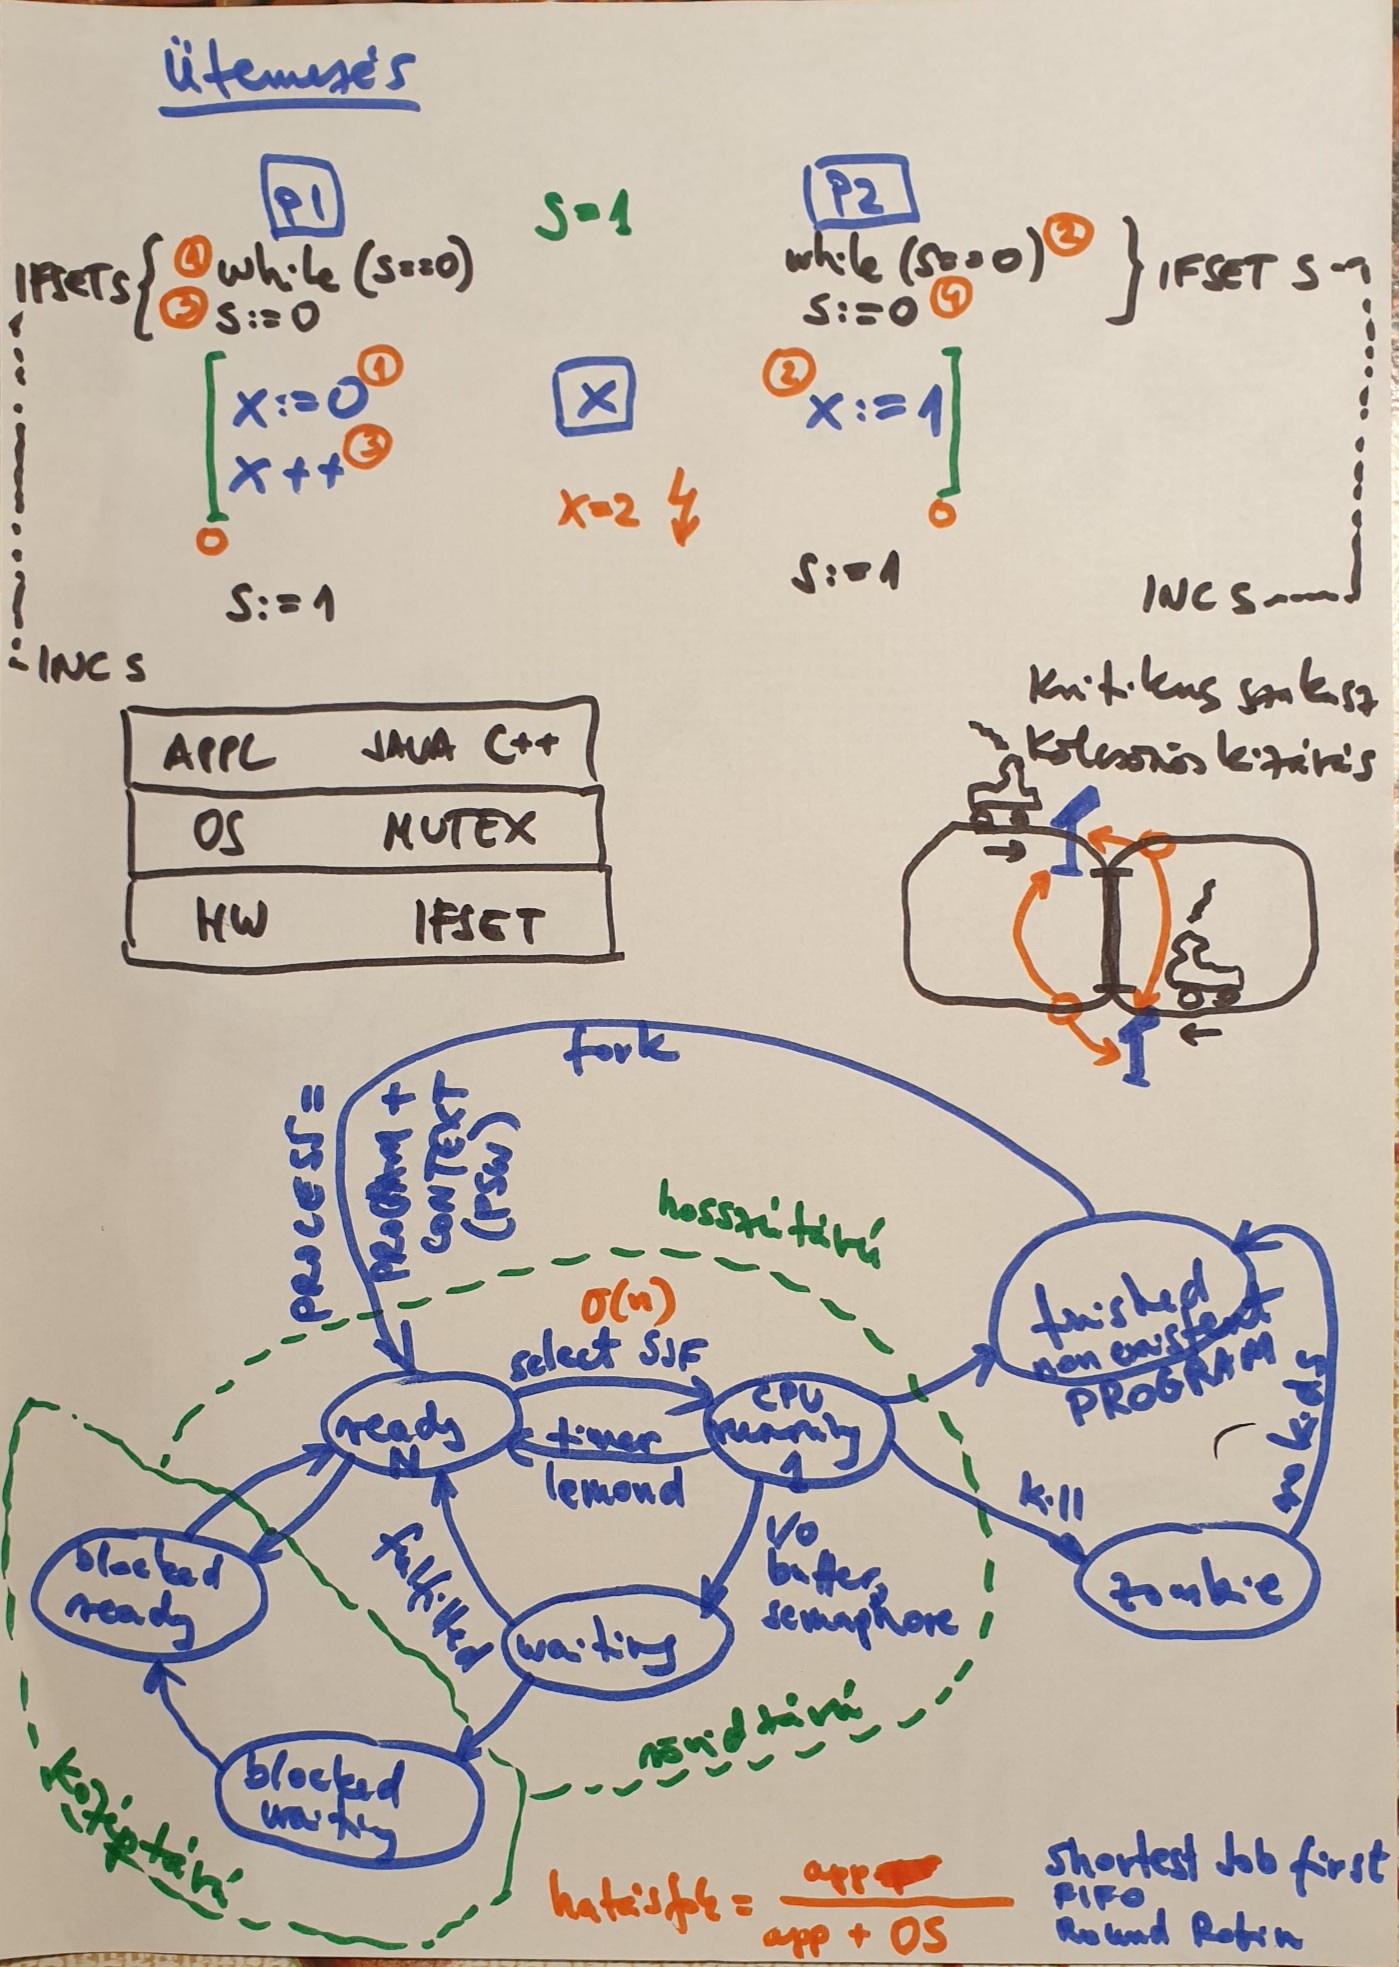 Ütemezés
P1
S=1
P2
IFSET S
① while (S==0)
③ S:=0
while (S==0) ②
S:=0 ④
IFSET S
X:=0 ①
X++ ③
X
② X:=1
X=2
0
0
S:=1
S:=1
INC S
INC S
APPL JAVA C++
OS MUTEX
HW IFSET
Kritikus szakasz
Kölcsönös kizárás
fork
PROCESS =
PROGRAM +
CONTEXT
(PSW)
hosszútávú
O(n)
select SJF
ready
N
timer
lemond
CPU
running
1
finished
non existent
PROGRAM
no kids
kill
zombie
I/O
buffer,
semaphore
fulfilled
waiting
blocked
ready
blocked
waiting
rövidtávú
középtávú
hatásfok = app
app + OS
Shortest Job first
FIFO
Round Robin